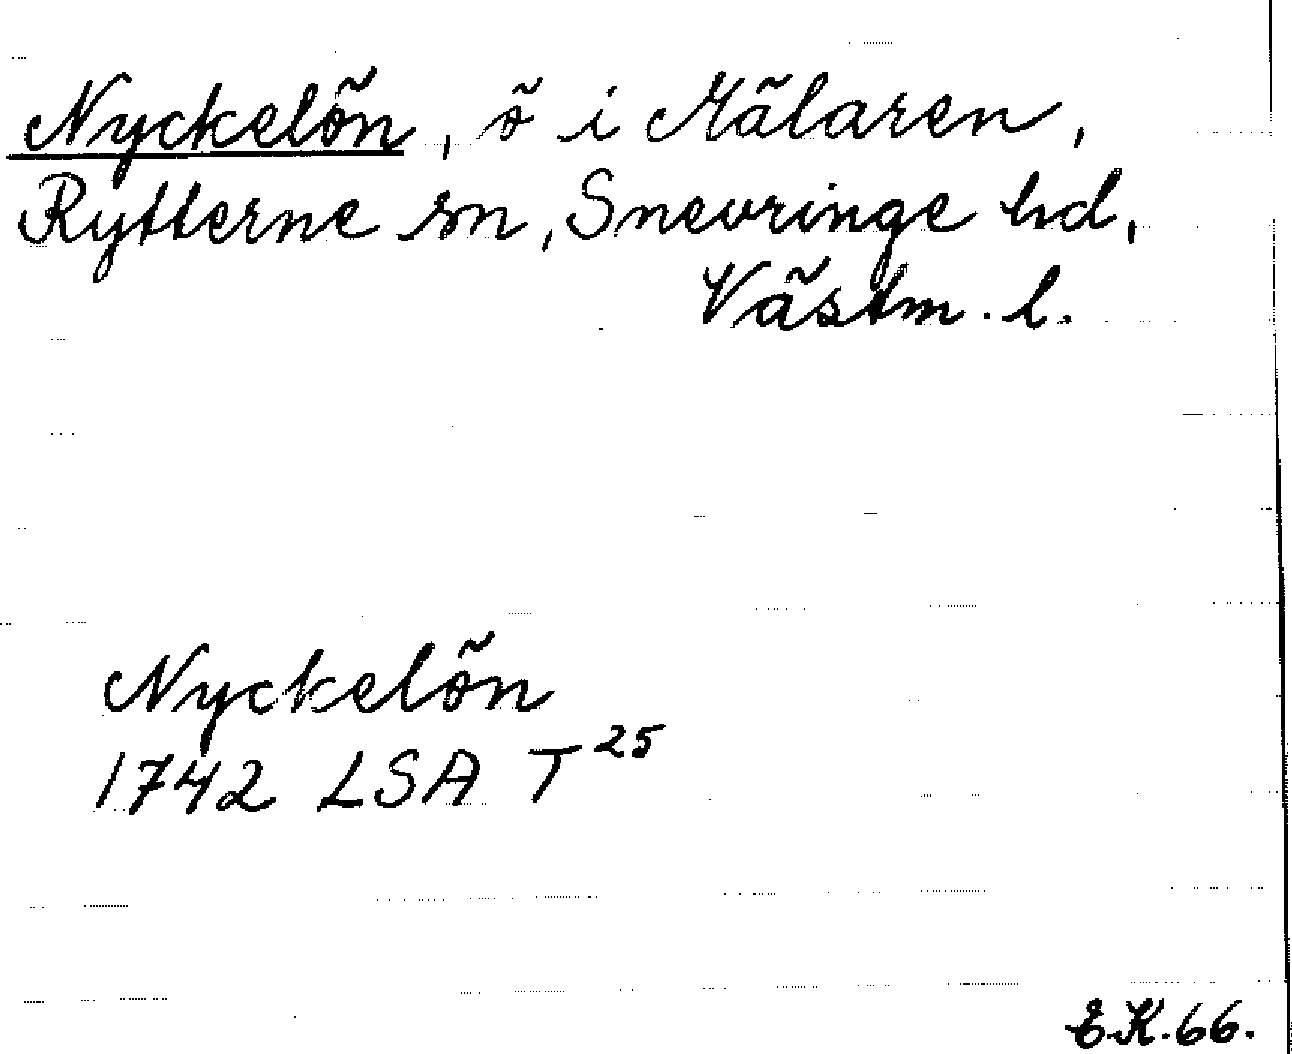 Nyckelön, ö i Mälaren,
Rytterne sn, Snevringe hd,
Västm. l.
Nyckelön
1742 LSA T 25
E.K.66.